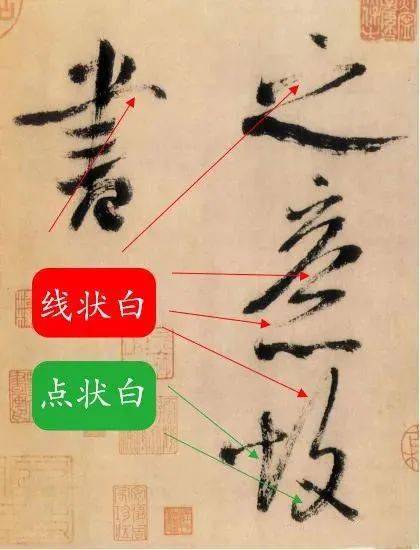 之意故
書
线状白
点状白